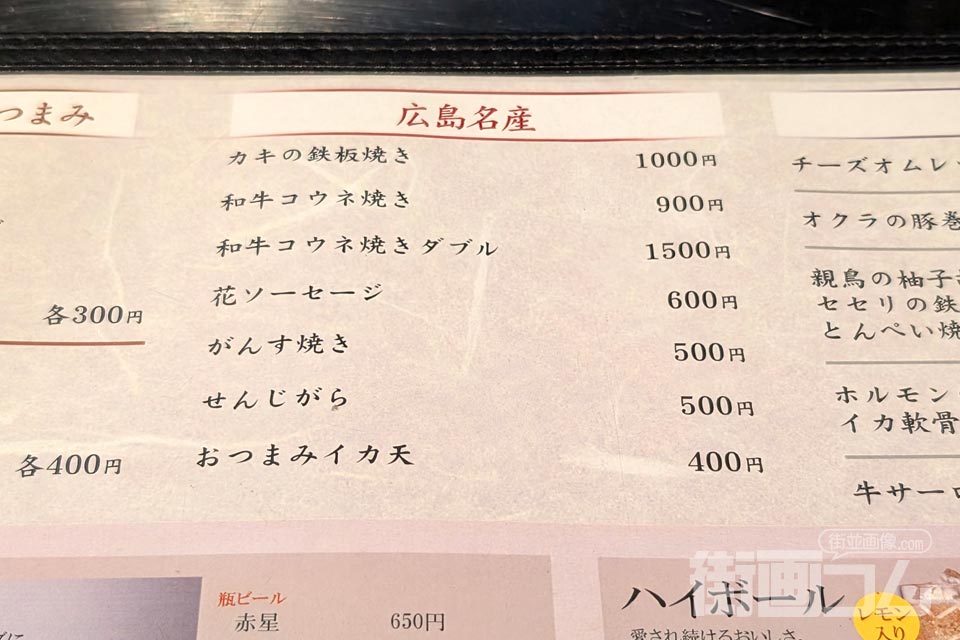 つまみ
各300円
各400円
広島名産
カキの鉄板焼き 1000円
和牛コウネ焼き 900円
和牛コウネ焼きダブル 1500円
花ソーセージ 600円
がんす焼き 500円
せんじがら 500円
おつまみイカ天 400円
チーズオムレ
オクラの豚巻
親鳥の柚子
セセリの鉄
とんぺい焼
ホルモン
イカ軟骨
牛サーロ
瓶ビール
赤星 650円
ハイボール
愛され続けるおいしさ。
レモン
入り
街並画像.com
街画コム